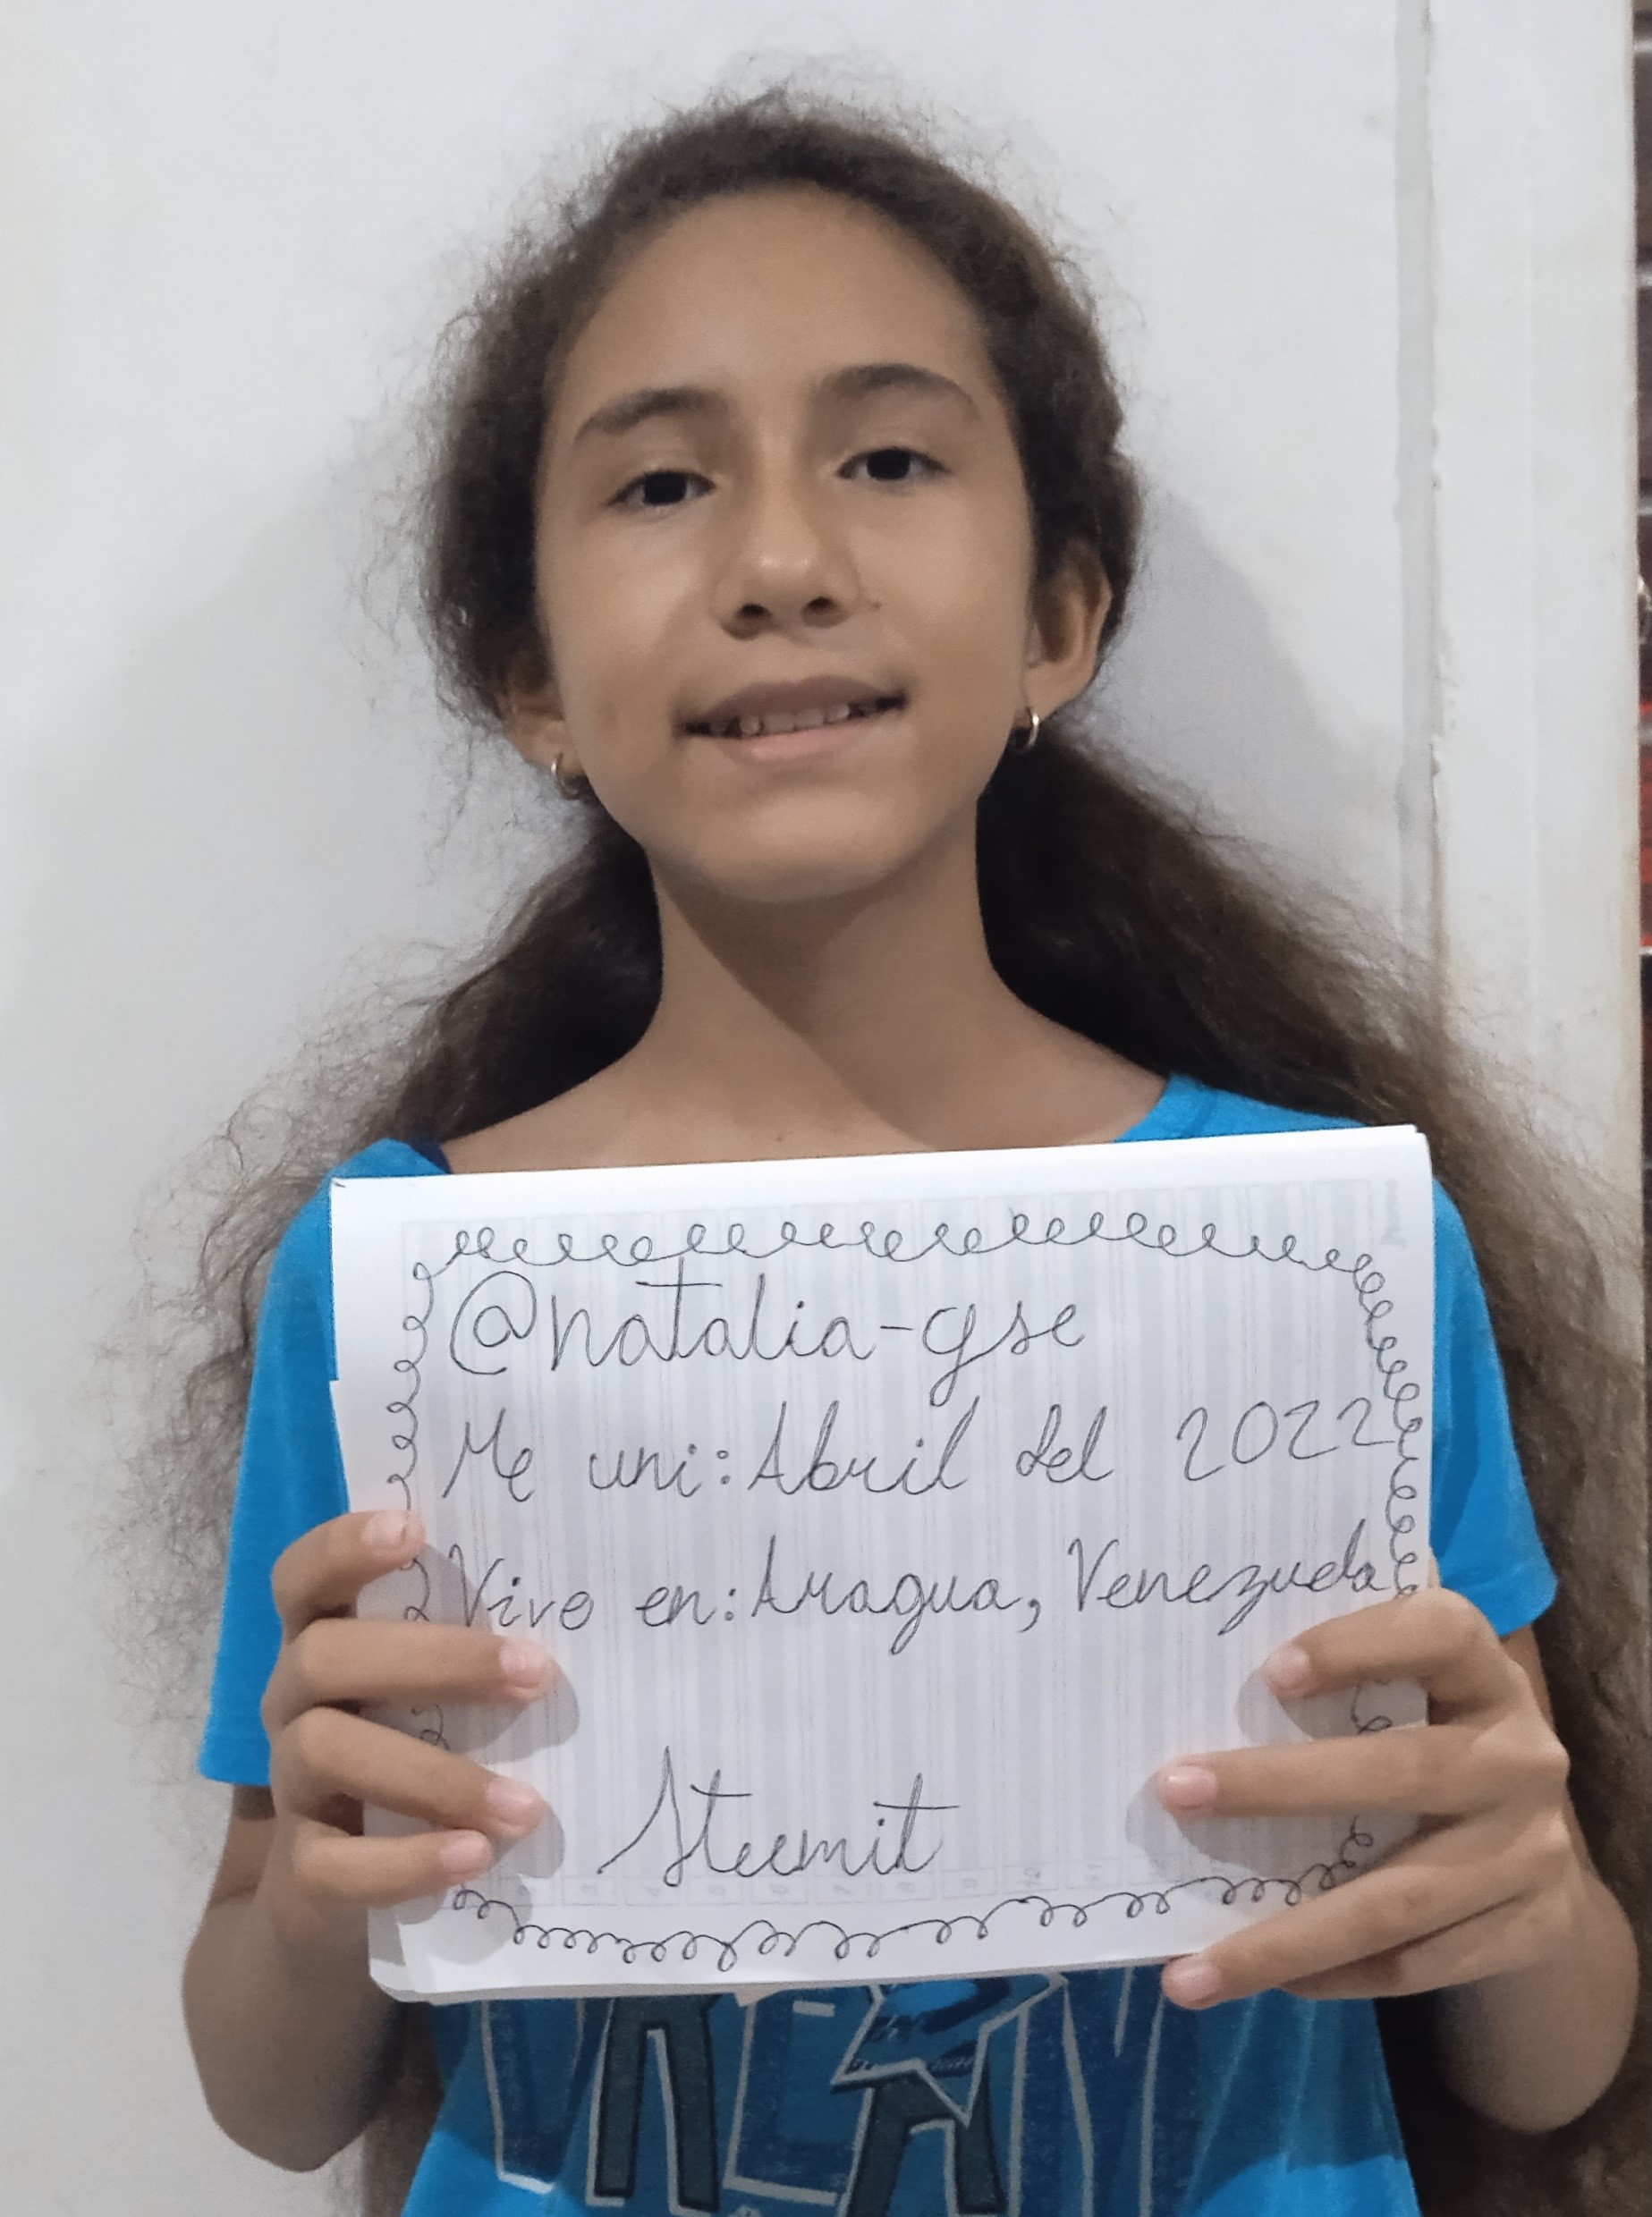 @natalia-gse
Me uni: Abril del 2022
Vivo en: Aragua, Venezuela
Steemit